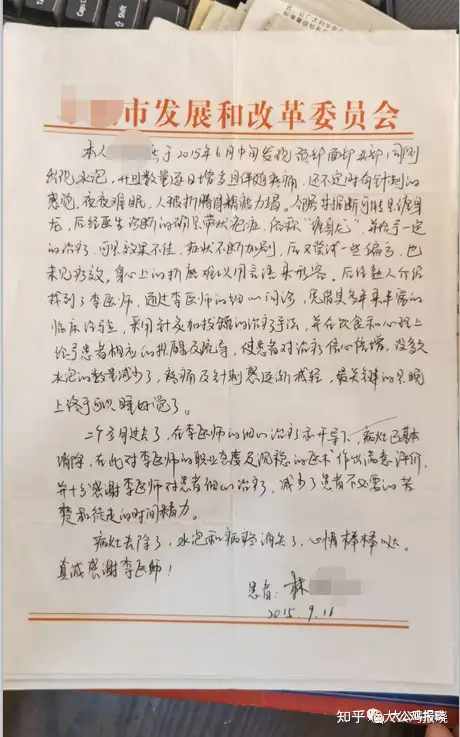 Caps
Shift
市发展和改革委员会
本人 于2015年6月中旬发现颈部面部 周刚
出现水泡,并且数量逐日增多且伴随疼痛,还不定时有针刺的
感觉,夜夜难眠,人被折腾得精疲力竭。人家 可能是缠身
龙,后经医生诊断的确是带状疱疹,俗称“缠身龙”,并给予一定
的治疗,可是效果不佳,症状不断加剧,后又尝试一些偏方,也
未见疗效,身心上的折磨难以用言语来形容。后经熟人介绍
找到了李医师,通过李医师的细心问诊,凭借其多年来丰富的
临床经验,采用针灸加拔罐的治疗手法,并在饮食和心理上
给予患者相应的提醒及疏导,使患者对治疗信心倍增,没多久
水泡的数量减少了,疼痛及针刺感逐渐减轻,最关键的是晚
上终于可以睡好觉了。
二个多月过去了,在李医师的细心治疗和开导下,病灶已基本
消除,在此对李医师的职业态度及 的医术作出高度评价,
并十分感谢李医师对患者细心治疗,减少了患者不必要的苦
楚和往返的时间精力。
病灶去除了,水泡和病疹消失了,心情棒棒哒。
真诚感谢李医师!
患者:林
2015.9.16
知乎 大公鸡报晓